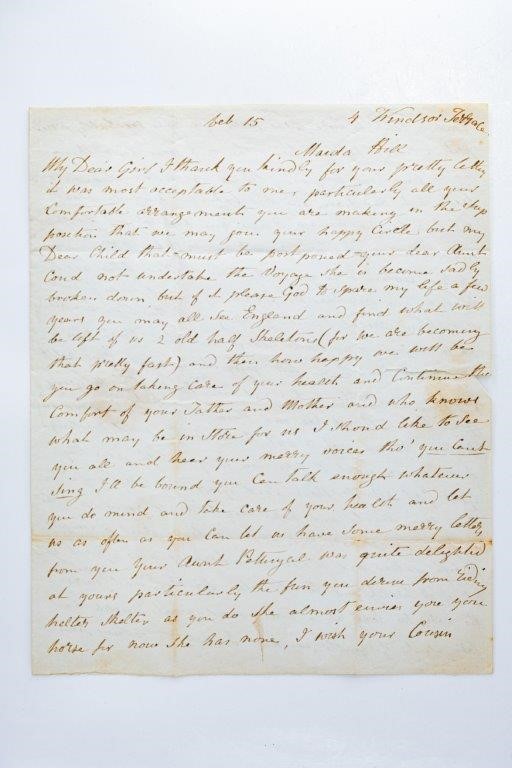 Feb 15 4 Windsor Terrace
Maida Hill
My Dear Girl I thank you kindly for your pretty letter
it was most acceptable to me, particularly all your
Comfortable arrangements you are making in the Sup
position that we may join your happy Circle but my
Dear Child that must be postponed your dear Aunt
Coud not undertake the Voyage She is become Sadly
broken down, but if it please God to Spare my life a few
years you may all See England and find what will
be left of us 2 old half Skeletons (for we are becoming
that pretty fast) and then how happy we will be
you go on taking care of your health and Continue the
Comfort of your Father and Mother and who knows
what may be in Store for us I Should like to See
you all and hear your merry voices tho' you Cant
Sing I'll be bound you Can talk enough whatever
you do mind and take care of your health and let
us as often as you Can let us have Some merry letters
from you your Aunt was quite delighted
at yours particularly the fun you derive from Riding
helter Skelter as you do She almost envies you your
horse for now She has none, I wish your Cousin